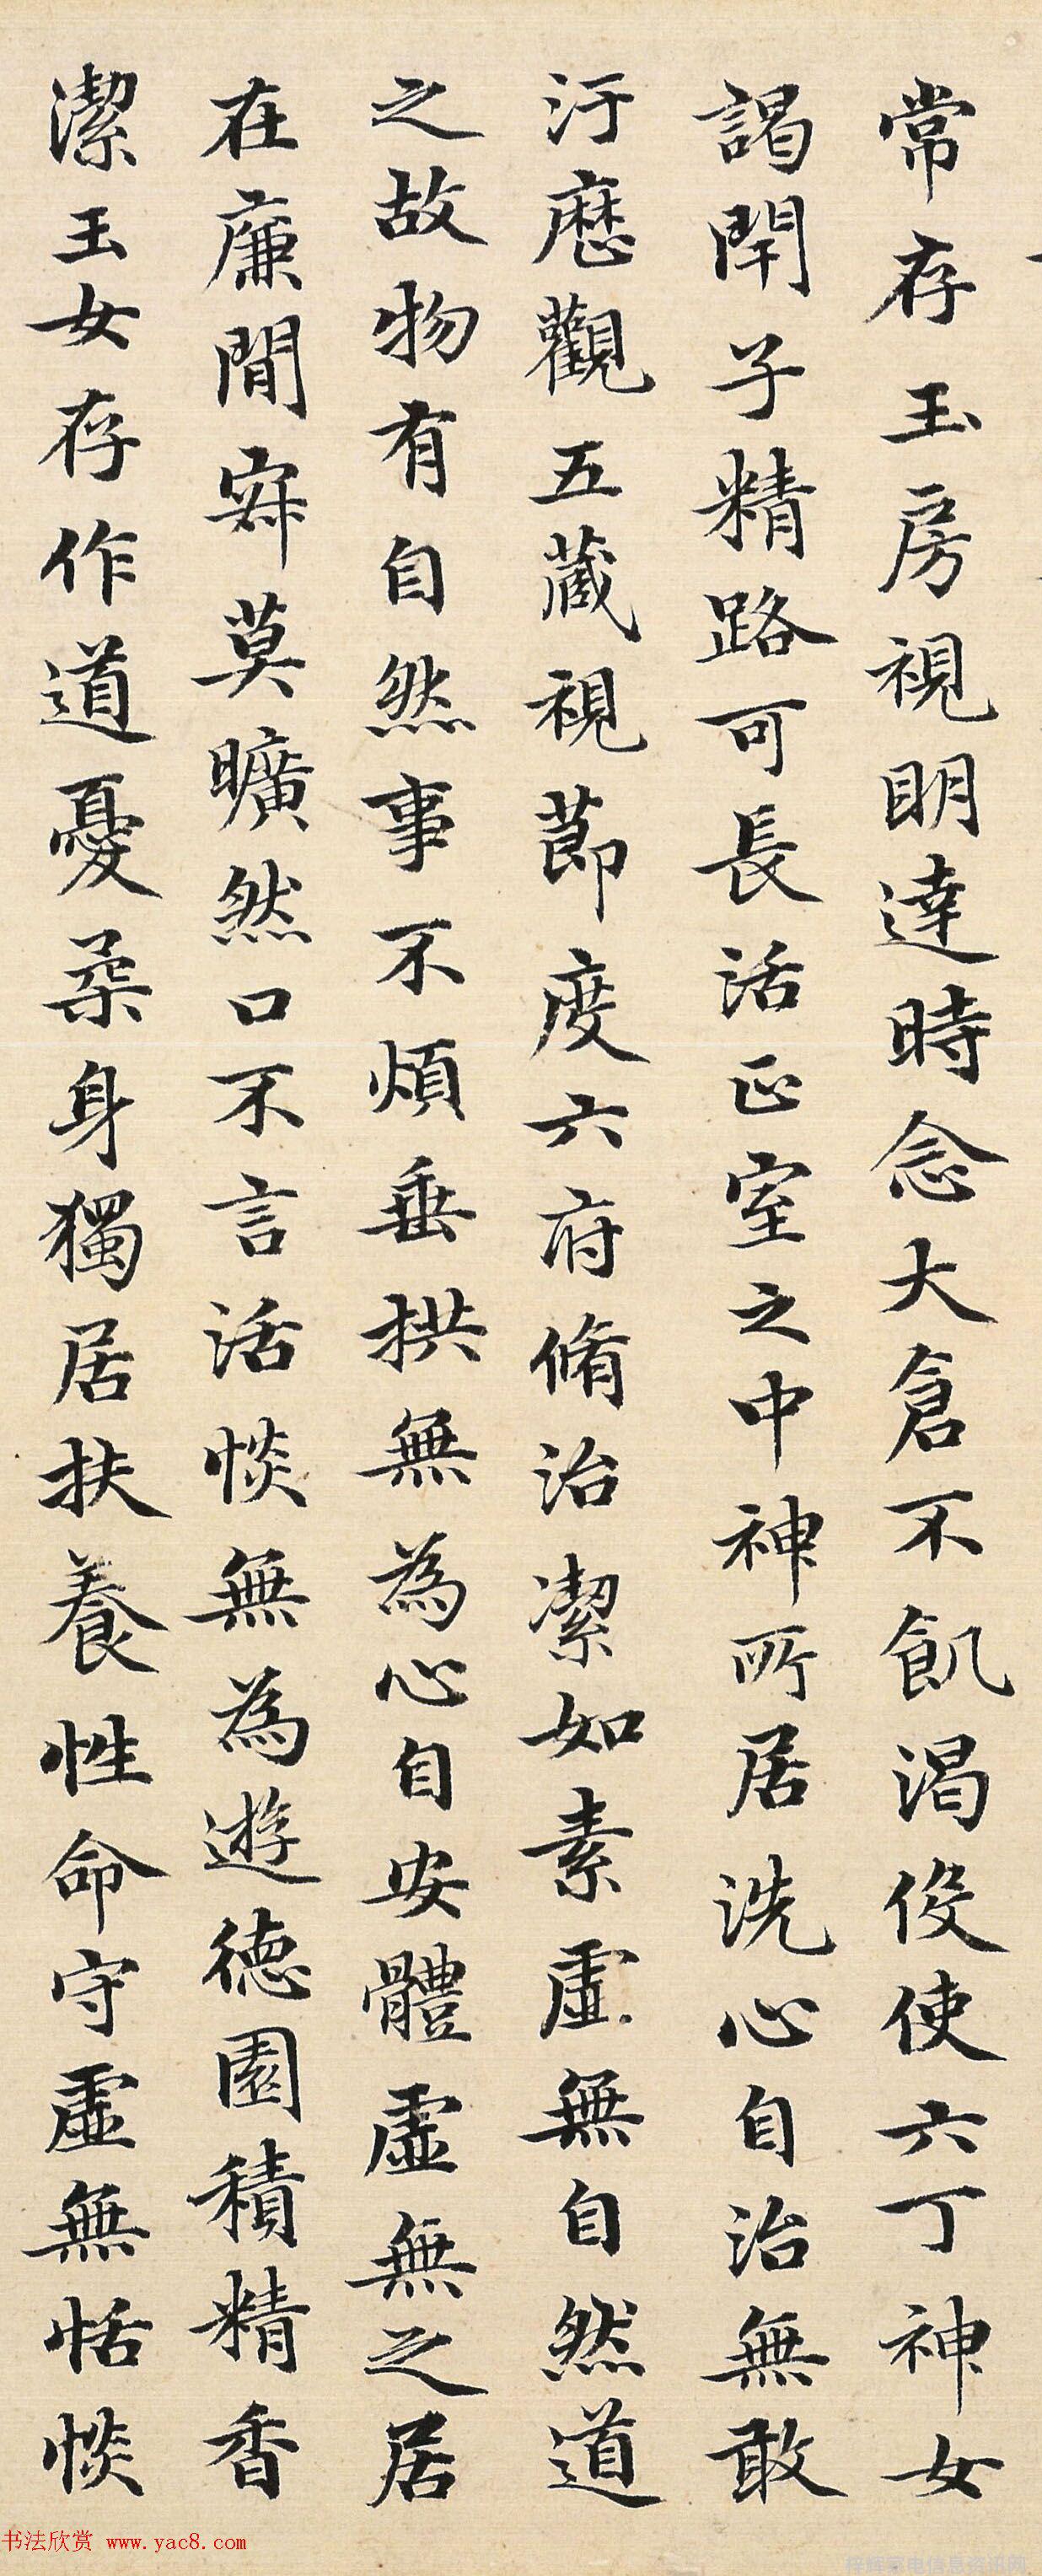 常存玉房視明達時念大倉不飢渴伇使六丁神女
謁閇子精路可長活正室之中神所居洗心自治無敢
汙歷觀五藏視節度六府脩治潔如素虛無自然道
之故物有自然事不煩垂拱無為心自安體虛無之居
在廉閒寂莫曠然口不言活惔無為遊德園積精香
潔玉女存作道憂柔身獨居扶養性命守虛無恬惔
书法欣赏 www.yac8.com